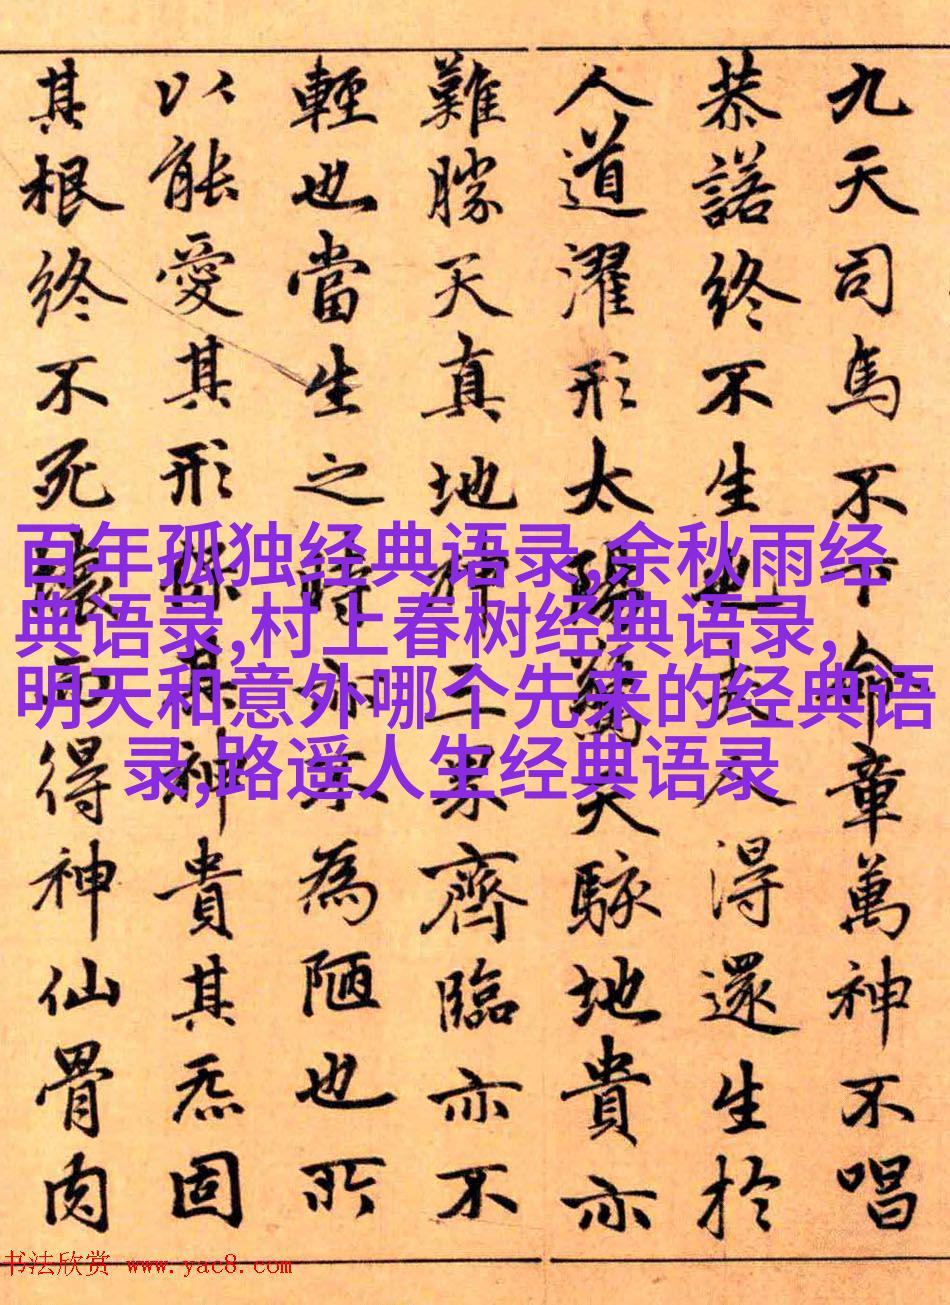 九天司馬不下命章萬神不唱
恭諾終不生也夫人得還生於
人道濯形太陽驚天駭地貴亦
難勝天真地神三界齊臨亦不
輕也當生之時亦不為陋也所
以能愛其形保其神貴其炁固
其根終不死壞而得神仙骨肉
百年孤独经典语录,余秋雨经
典语录,村上春树经典语录,
明天和意外哪个先来的经典语
录,路遥人生经典语录
书法欣赏 www.yac8.com